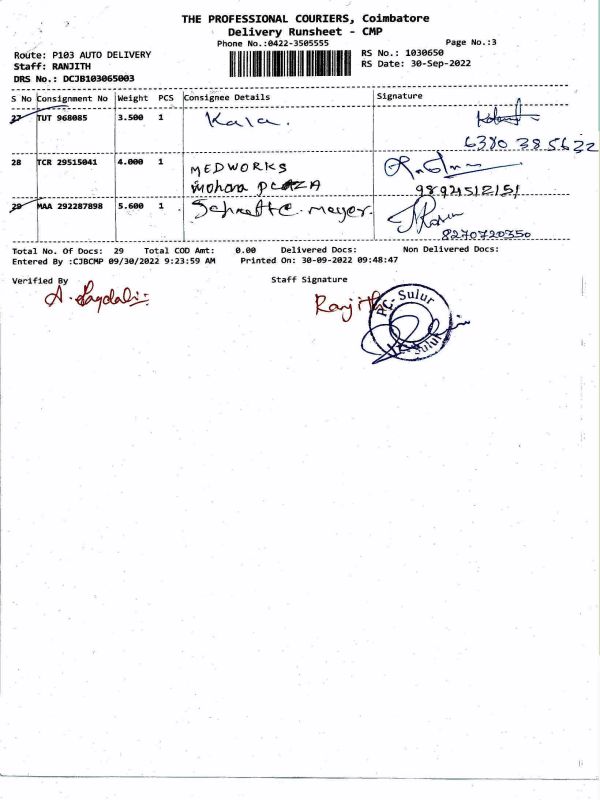 THE PROFESSIONAL COURIERS, Coimbatore
Delivery Runsheet - CMP
Phone No.:0422-3505555
Page No.:3
Route: P103 AUTO DELIVERY
RS No.: 1030650
Staff: RANJITH
RS Date: 30-Sep-2022
DRS No.: DCJB103065003
S No Consignment No Weight PCS Consignee Details Signature
27 TUT 968085 3.500 1 Kala.
6380385622
28 TCR 29515041 4.000 1 MEDWORKS
PLAZA
9894515151
29 MAA 292287898 5.600 1
8270720350
Total No. Of Docs: 29 Total COD Amt: 0.00 Delivered Docs: Non Delivered Docs:
Entered By :CJBCMP 09/30/2022 9:23:59 AM Printed On: 30-09-2022 09:48:47
Verified By Staff Signature
Ranjith
P.C. Sulur
Sulur